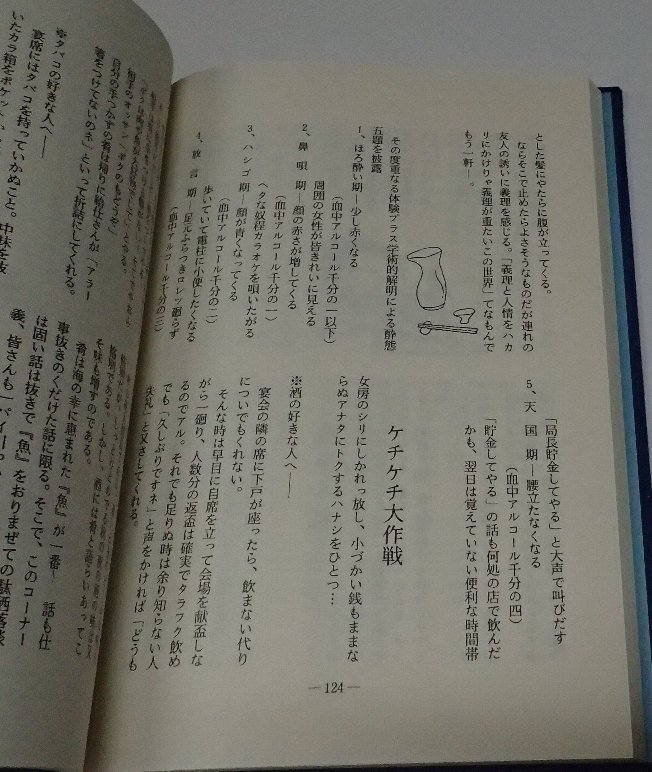 とした髪にやたらに腹が立ってくる。
ならそこで止めたらよさそうなものだが連れの
友人の誘いに義理を感じる。「義理と人情をハカ
リにかけりゃ義理が重たいこの世界」てなもんで
もう一軒―。
その度重なる体験プラス学術的解明による酔態
五題を披露
1、ほろ酔い期―少し赤くなる
(血中アルコール千分の一以下)
周囲の女性が皆きれいに見える
2、鼻唄期―顔の赤さが増してくる
(血中アルコール千分の一)
ヘタな奴程カラオケを唄いたがる
3、ハシゴ期―顔が青くなってくる
(血中アルコール千分の二)
歩いていて電柱に小便したくなる
4、放言期―足元ふらつきロレツ廻らず
(血中アルコール千分の三)
「局長貯金してやる」と大声で叫びだす
5、天国期―腰立たなくなる
(血中アルコール千分の四)
「貯金してやる」の話も何処の店で飲んだ
かも、翌日は覚えていない便利な時間帯
ケチケチ大作戦
女房のシリにしかれっ放し、小づかい銭もままな
らぬアナタにトクするハナシをひとつ…
※酒の好きな人へ――
宴会の隣の席に下戸が座ったら、飲まない代り
についでもくれない。
そんな時は早目に自席を立って会場を献盃しな
がら一廻り、人数分の返盃は確実でタラフク飲め
るのでアル。それでも足りぬ時は余り知らない人
でも「久しぶりですネ」と声をかければ「どうも
失礼」と又さしてくれる。
―124―
自分の手つかずの肴は帰りに給仕さんが「アラー
箸をつけてないのネ」といって折詰にしてくれる。
※タバコの好きな人へ――
宴席にはタバコを持っていかぬこと。中味を抜
いたカラ箱をポケット
そ味も増すのである。
肴は海の幸に恵まれた『魚』が一番― 話も仕
事抜きのくだけた話に限る。そこで、このコーナー
は固い話は抜きで『魚』をおりまぜての駄洒落談
義、皆さんも一パイ